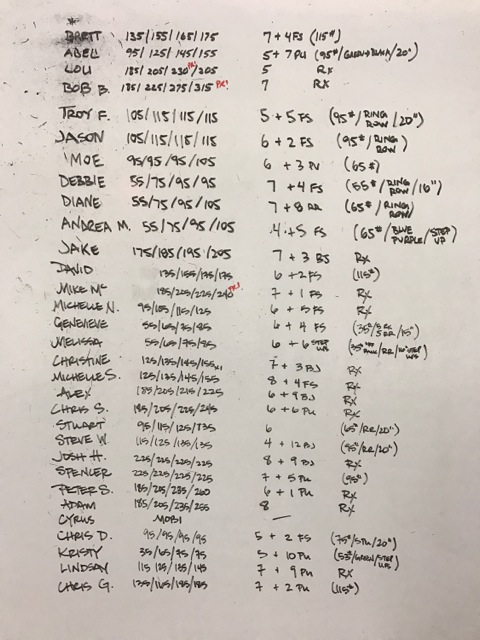 *
BRETT 135/155/165/175 7 + 4FS (115#)
ABELL 95/125/145/155 5 + 7PU (95#/GREEN+BLACK/20")
LOU 185/205/230 PR!/205 5 RX
BOB B. 185/225/275/315 PR! 7 RX
TROY F. 105/115/115/115 5 + 5 FS (95#/RING ROW/20")
JASON 105/115/115/115 6 + 2 FS (95#/RING ROW)
MOE 95/95/95/105 6 + 3 PU (65#)
DEBBIE 55/75/95/95 7 + 4 FS (55#/RING ROW/16")
DIANE 55/75/95/105 7 + 8 RR (65#/RING ROW)
ANDREA M. 55/75/95/105 4 + 5 FS (65#/BLUE PURPLE/STEP UP)
JAKE 175/185/195/205 7 + 3 BJ RX
DAVID 135/155/175/175 6 + 2 FS (115#)
MIKE MC 185/225/225/240 PR! 7 + 1 FS RX
MICHELLE N. 95/105/115/125 6 + 5 FS RX
GENEVIEVE 55/65/75/85 6 + 4 FS
MELISSA 55/65/75/85 6 + 6 STEP UPS
CHRISTINE 125/135/145/155 7 + 3 BJ RX
MICHELLE S. 125/135/145/155 8 + 4 FS RX
ALEX 185/205/215/225 6 + 9 BJ RX
CHRIS S. 185/205/225/245 6 + 6 PU RX
STUART 95/115/125/135 6 (65#/RR/20")
STEVE W. 115/125/135/135 4 + 12 BJ (95#/RR/20")
JOSH H. 225/225/225/225 8 + 9 BJ RX
SPENCER 225/225/225/225 7 + 5 PU (95#)
PETER S. 185/205/235/260 6 + 1 PU RX
ADAM 185/205/235/255 8 RX
CYRUS MOBI —
CHRIS D. 95/95/95/95 5 + 2 FS (75#/SPU/20")
KRISTY 35/65/75/75 5 + 10 PU (55#/GREEN/STEP UPS)
LINDSAY 115 125/135/145 7 + 9 PU RX
CHRIS G. 135/165/185/185 7 + 2 PU (115#)